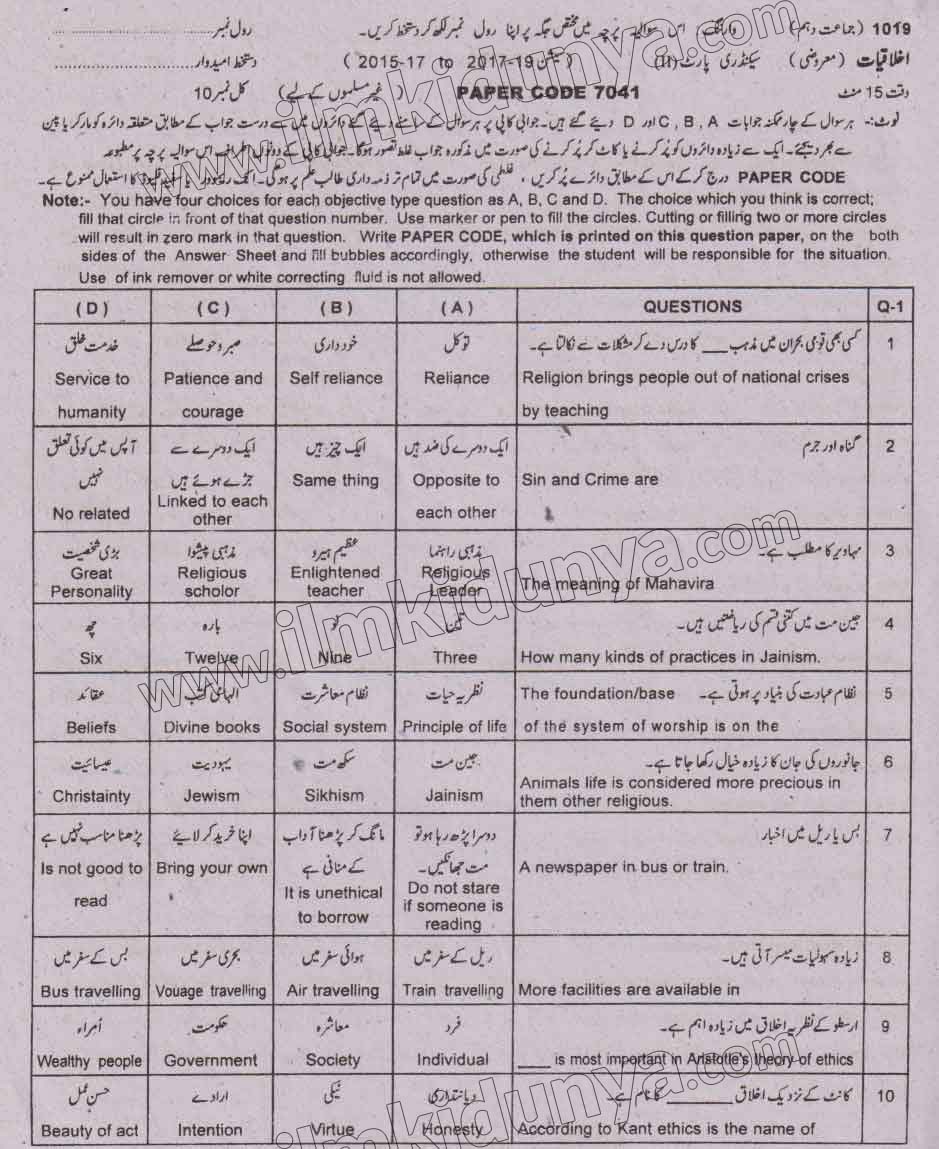 1019 (جماعت دہم) وارننگ: اس سوالیہ پرچہ میں مختص جگہ پر اپنا رول نمبر لکھ کر دستخط کریں۔ رول نمبر
اخلاقیات (معروضی) سیکنڈری پارٹ (II) (سیشن 19-2017 to 2015-17) دستخط امیدوار
وقت 15 منٹ PAPER CODE 7041 (غیر مسلموں کے لیے) کل نمبر 10
نوٹ:- ہر سوال کے چار ممکنہ جوابات C, B, A اور D دیئے گئے ہیں۔ جوابی کاپی پر ہر سوال کے سامنے دیئے گئے دائروں میں سے درست جواب کے مطابق متعلقہ دائرہ کو مارکر یا پین
سے بھر دیجئے۔ ایک سے زیادہ دائروں کو پُر کرنے یا کاٹ کر پُر کرنے کی صورت میں مذکورہ جواب غلط تصور ہوگا۔ جوابی کاپی کے دونوں اطراف اس سوالیہ پرچہ پر مطبوعہ
PAPER CODE درج کرکے اس کے مطابق دائرے پُر کریں، غلطی کی صورت میں تمام تر ذمہ داری طالب علم پر ہوگی۔ انک ریموور یا سفید فلیوڈ کا استعمال ممنوع ہے۔
Note:- You have four choices for each objective type question as A, B, C and D. The choice which you think is correct;
fill that circle in front of that question number. Use marker or pen to fill the circles. Cutting or filling two or more circles
will result in zero mark in that question. Write PAPER CODE, which is printed on this question paper, on the both
sides of the Answer Sheet and fill bubbles accordingly, otherwise the student will be responsible for the situation.
Use of ink remover or white correcting fluid is not allowed.
(D) (C) (B) (A) QUESTIONS Q-1
خدمت خلق صبر و حوصلے خود داری توکل کسی بھی قومی بحران میں مذہب ___ کا درس دے کر مشکلات سے نکالتا ہے۔ 1
Service to Patience and Self reliance Reliance Religion brings people out of national crises
humanity courage by teaching
آپس میں کوئی تعلق ایک دوسرے سے ایک چیز ہیں ایک دوسرے کی ضد ہیں گناہ اور جرم 2
نہیں جڑے ہوئے ہیں Same thing Opposite to Sin and Crime are
No related Linked to each other each other
بڑی شخصیت مذہبی پیشوا عظیم ہیرو مذہبی راہنما مہاویر کا مطلب ہے۔ 3
Great Religious Enlightened Religious The meaning of Mahavira
Personality scholor teacher Leader
چھ بارہ نو تین جین مت میں کتنی قسم کی ریاضتیں ہیں۔ 4
Six Twelve Nine Three How many kinds of practices in Jainism.
عقائد الہامی کتب نظام معاشرت نظریہ حیات نظام عبادت کی بنیاد پر ہوتی ہے۔ The foundation/base 5
Beliefs Divine books Social system Principle of life of the system of worship is on the
عیسائیت یہودیت سکھ مت جین مت جانوروں کی جان کا زیادہ خیال رکھا جاتا ہے۔ 6
Christainty Jewism Sikhism Jainism Animals life is considered more precious in
them other religious.
پڑھنا مناسب نہیں ہے اپنا خرید کر لائیے مانگ کر پڑھنا آداب دوسرا پڑھ رہا ہو تو بس یا ریل میں اخبار 7
Is not good to Bring your own کے منافی ہے مت جھانکیں۔ A newspaper in bus or train.
read It is unethical Do not stare
to borrow if someone is
reading
بس کے سفر میں بحری سفر میں ہوائی سفر میں ریل کے سفر میں زیادہ سہولیات میسر آتی ہیں۔ 8
Bus travelling Vouage travelling Air travelling Train travelling More facilities are available in
اُمراء حکومت معاشرہ فرد ارسطو کے نظریہ اخلاق میں زیادہ اہم ہے۔ 9
Wealthy people Government Society Individual ___ is most important in Aristotle's theory of ethics
حسن عمل ارادے نیکی دیانتداری کانٹ کے نزدیک اخلاق ______ کا نام ہے۔ 10
Beauty of act Intention Virtue Honesty According to Kant ethics is the name of
www.ilmkidunya.com
www.ilmkidunya.com
www.ilmkidunya.com
www.ilmkidunya.com